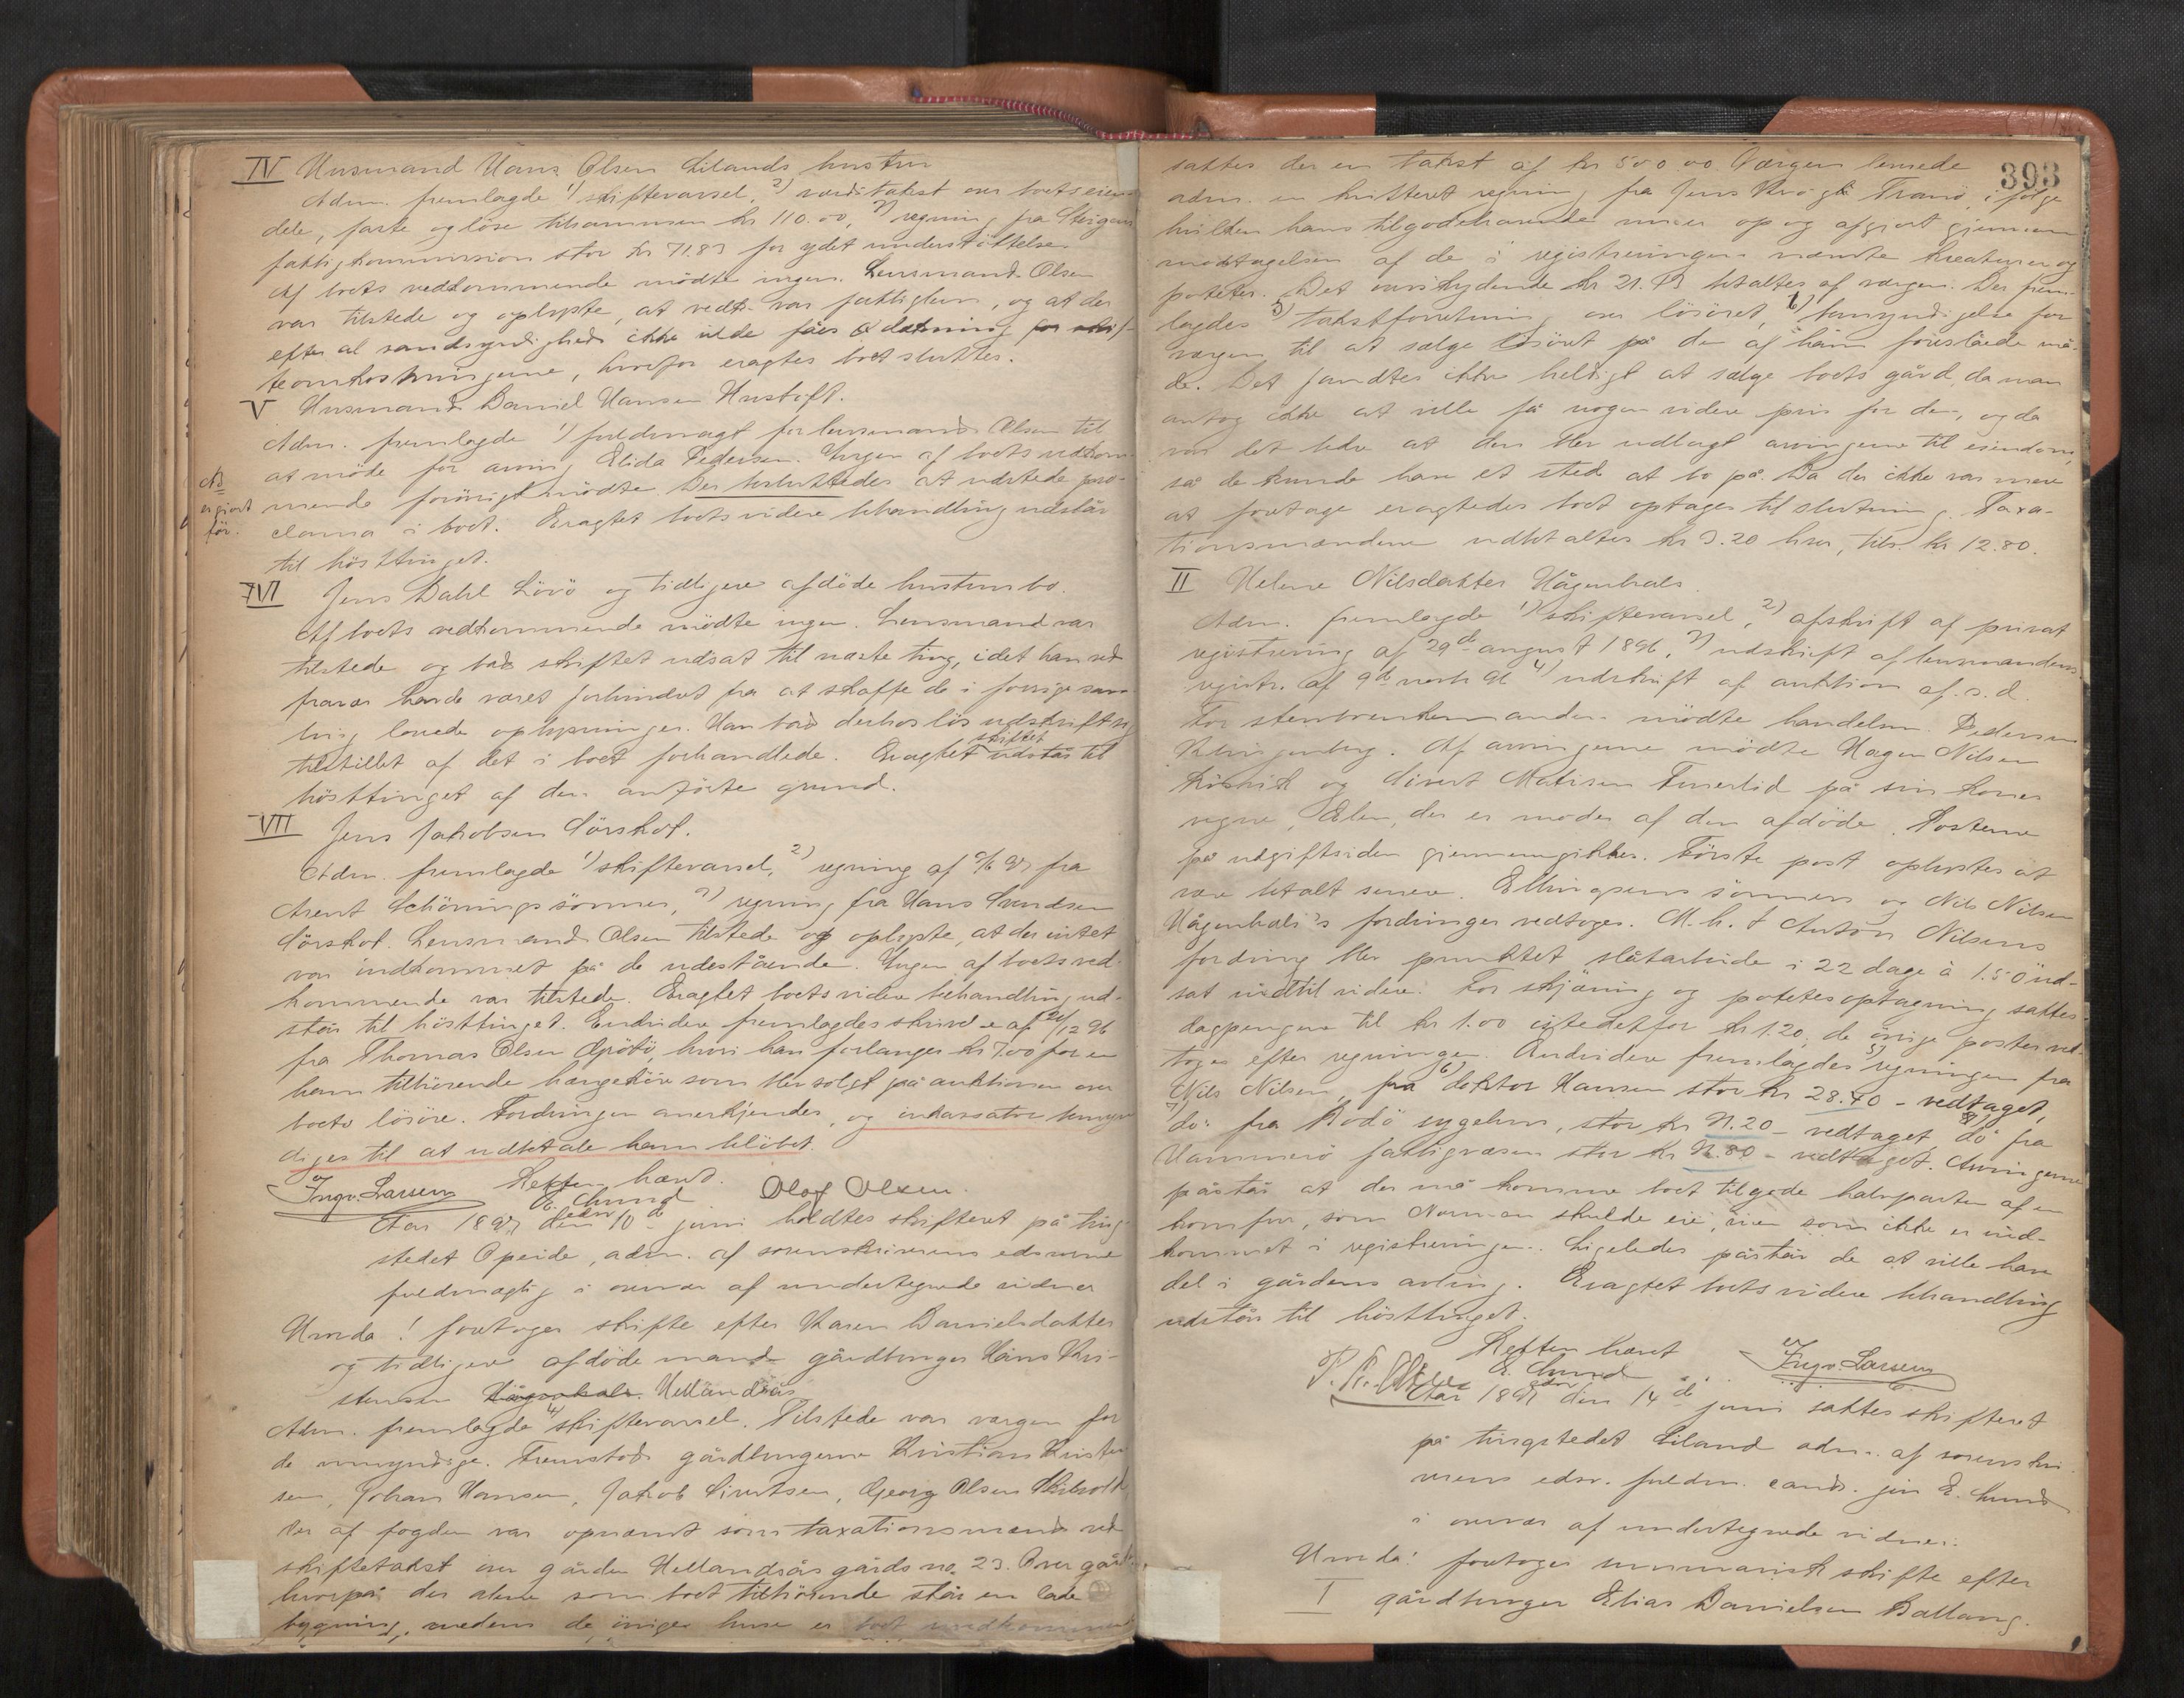 IV Husmand Hans Olsen Lilands hustru
Adm. fremlagde 1) skiftevarsel, 2) værditakst over boets eien-
dele, faste og löse tilsammen kr 110.00, 3) regning fra Steigens
fattigkommission stor kr 71.83 for ydet understöttelse.
Af boets vedkommende mödte ingen. Lensmand Olsen
var tilstede og oplyste, at vedk. var fattiglem, og at der
efter al sandsynlighed ikke vilde fåes dækning for skif-
teomkostningerne, hvorfor eragtes boet sluttes.
V Husmand Daniel Hansen Hustoft.
Adm. fremlagde 1) fuldmagt for lensmand Olsen til
at möde for arving Elida Pedersen. Ingen af boets vedkom-
mende forövrigt mödte. Der besluttedes at udstede pro-
er gjort
för.
clama i boet. Eragtet boets videre behandling udstår
til hösttinget.
VI Jens Dahl Lövö og tidligere afdöde hustrus bo.
Af boets vedkommende mödte ingen. Lensmand var
tilstede og bad skiftet udsat til næste ting, idet han ved
fravær havde været forhindret fra at skaffe de i forrige sam-
ling lovede oplysninger. Han bad derhos lös udskrift sig
tilstillet af det i boet forhandlede. Eragtet skiftet udstår til
hösttinget af den anförte grund.
VII Jens Jakobsen Sörskot.
Adm. fremlagde 1) skiftevarsel, 2) regning af 97 fra
Arent Schönings sönner, 3) regning fra Hans Svendsen
Sörskot. Lensmand Olsen tilstede og oplyste, at der intet
var indkommet på de udestående. Ingen af boets ved-
kommende var tilstede. Eragtet boets videre behandling ud-
står til hösttinget. Endvidere fremlagdes skrivelse af 12 96
fra Thomas Olsen hvori han forlanger kr 7.00 for en
ham tilhörende hængeköie som blev solgt på auktionen over
boets lösöre. Fordringen anerkjendes, og inkassator bemyn-
diges til at udbetale ham belöbet.
Skiften hævet.
Ingv. Larsen E. Lund edsv Olaf Olsen.
Aar 1897 den 10de juni holdtes skifteret på ting-
stedet Opeide, adm. af sorenskriverens edsvorne
fuldmægtig i overvær af undertegnede vidner
Hvorda! foretoges skifte efter Karen Danielsdatter
og tidligere afdöde mand gårdbruger Hans Kri-
stensen Hellandsås
Adm. fremlagde 4) skiftevarsel. Tilstede var værgen for
de umyndige. Fremstod gårdbrugerne Kristian Kristen-
sen, Johan Hansen, Jakob Sivertsen, Georg Olsen
der af fogden var opnævnt som taxationsmænd ved
skiftetakst over gården Hellandsås gårds no. 23. Over gården
hvorpå der alene som boet tilhörende står en lade
bygning, medens de övrige huse er boet uvedkommende
393
sattes der en takst af kr 500.00 Værgen leverede
adm. en kvitteret regning fra Jens Krogh Tranö, ifölge
hvilken hans tilgodehavende var op og afgjort gjennem
modtagelsen af de i registreringen nævnte kreaturer og
poteter. Det overskydende kr 21.13 betaltes af værgen. Der frem-
lagdes 5) takstforretning over lösöret, 6) bemyndigelse for
værgen til at sælge lösöret på den af ham foreslåede må-
de. Det fandtes ikke heldigt at sælge boets gård, da man
antog ikke at ville få nogen videre pris for den, og da
var det bedre at den blev udlagt arvingerne til eiendom,
så de kunde have et sted at bo på. Da der ikke var mere
at foretage eragtedes boet optages til slutning. Taxa-
tionsmændene udbetaltes kr 3.20 hver, tils. kr 12.80.
II Helene Nilsdatter Hågenhals
Adm. fremlagde 1) skiftevarsel, 2) afskrift af privat
registrering af 29de august 1896, 3) udskrift af lensmandens
registr. af 9de novb 96 4) udskrift af auktion af s.d.
For stervboenkemanden mödte handelsm. Pedersen
Klingenberg. Af arvingerne mödte Hagen Nilsen
og Sivert Matisen på sin kones
vegne, Elen, der er moder af den afdöde. Posterne
på udgiftsiden gjennemgikkes. Förste post oplystes at
være betalt senere. Ellingsens sönners og Nils Nilsen
Hågenhals's fordringer vedtoges. M.h.t Anton Nilsens
fordring blev punktet slåtarbeide i 22 dage à 1.50 ud-
sat indtil videre. For skjæring og potetesoptagning sattes
dagpengene til kr 1.00 istedetfor kr 1.20, de övrige poster ved-
toges efter regningen. Endvidere fremlagdes 5) regningen fra
Nils Nilsen, 6) fra doktor Hansen stor kr 28.40 - vedtaget,
7) do. fra Bodö sygehus, stor kr 31.20 - vedtaget, 8) do fra
Hammerö fattigvæsen stor kr - vedtaget. Arvingerne
påstår at der må komme boet tilgode halvparten af en
komfur, som Norman skulde eie, men som ikke er ind-
kommet i registreringen. Ligeledes påstår de at ville have
del i gårdens avling. Eragtet boets videre behandling
udstår til hösttinget.
Skiften hævet
E. Lund edsv Ingv. Larsen
Aar 1897 den 14de juni sattes skifteret
på tingstedet Liland adm. af sorenskri-
verens edsv. fuldm. cand. jur E. Lund
i overvær af undertegnede vidner:
Hvorda! foretoges summarisk skifte efter
I gårdbruger Elias Danielsen Ballang.